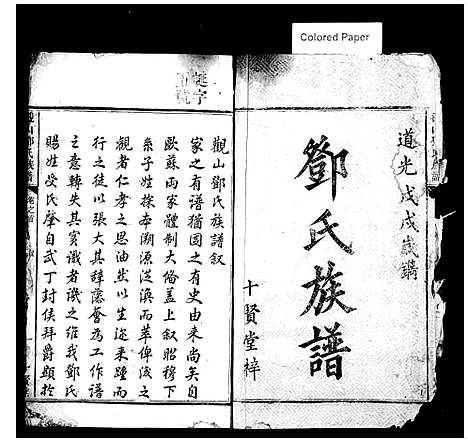 Colored Paper
道光戊戌歲鐫
鄧氏族譜
十賢堂梓
觀山鄧氏族譜叙
家之有譜猶國之有史由來尚矣自
歐蘇兩家體制大備蓋上叙昭穆下
系子姓探本溯源泛濆而萃俾後之
觀者仁孝之思油然以生迩來踵而
行之徒以張大其辭藻薈為工作譜
之意轉失其實識者譏之維我鄧氏
賜姓受氏肈自武丁封侯拜爵顯於